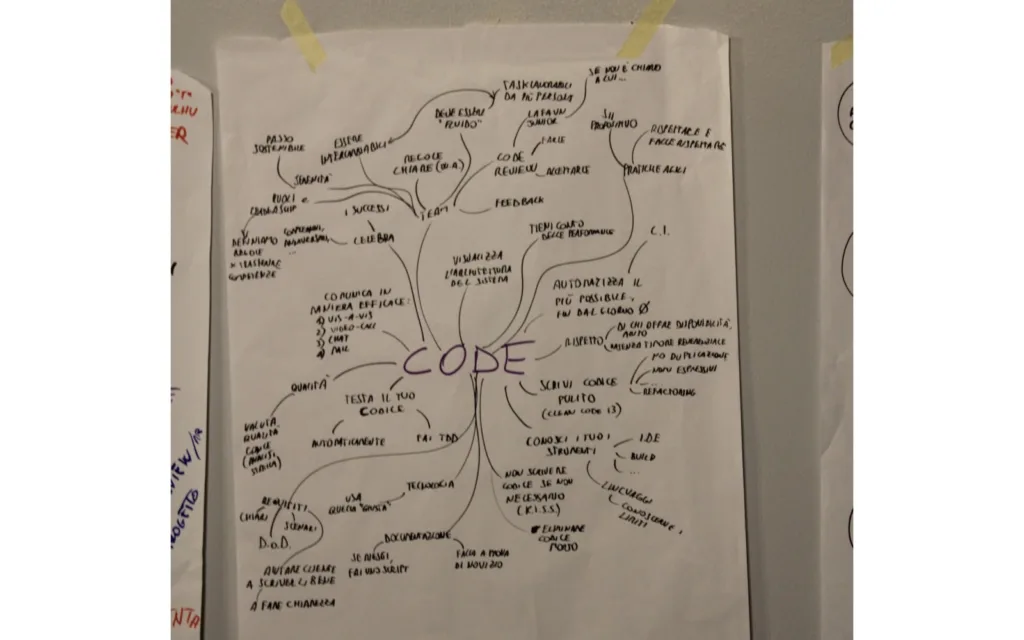 TASK LAVORABILI
DA PIÙ PERSONE
SE NON È CHIARO
A LUI...
DEVE ESSERE
"FLUIDO"
LA FA UN
JUNIOR
SII
PROPOSITIVO
RISPETTARE E
FARLE RISPETTARE
PASSO
SOSTENIBILE
ESSERE
INTERCAMBIABILI
REGOLE
CHIARE
CODE
REVIEW
FARLE
ACCETTARLE
PRATICHE AGILI
SERENITÀ
RUOLI e
LEADERSHIP
I SUCCESSI
TEAM
FEEDBACK
DEFINIAMO
REGOLE
COMPLEANNI,
ANNIVERSARI
...
CELEBRA
COMPETENZE
TIENI CONTO
DELLE PERFORMANCE
C.I.
VISUALIZZA
L'ARCHITETTURA
DEL SISTEMA
AUTOMATIZZA IL
PIÙ POSSIBILE,
FIN DAL GIORNO Ø
COMUNICA IN
MANIERA EFFICACE:
1) VIS-A-VIS
2) VIDEO-CALL
3) CHAT
4) MAIL
CODE
RISPETTO
DI CHI OFFRE DISPONIBILITÀ,
AIUTO
SENZA TIMORE REVERENZIALE
NO DUPLICAZIONE
NOMI ESPRESSIVI
REFACTORING
SCRIVI CODICE
PULITO
(CLEAN CODE
QUALITÀ
TESTA IL TUO
CODICE
AUTOMATICAMENTE
FAI TDD
VALUTA
QUALITÀ
CODICE
(ANALISI
STATICA)
CONOSCI I TUOI
STRUMENTI
IDE
BUILD
...
LINGUAGGI
CONOSCERNE I
LIMITI
NON SCRIVERE
CODICE SE NON
NECESSARIO
(K.I.S.S.)
ELIMINARE
CODICE
MORTO
TECNOLOGIA
USA
QUELLA "GIUSTA"
REQUISITI
CHIARI
SCENARI
D.o.D.
DOCUMENTAZIONE
SE RIESCI,
FAI UNO SCRIPT
FALLA A PROVA
DI NOVIZIO
AIUTARE CLIENTE
A SCRIVERLI BENE
A FARE CHIAREZZA